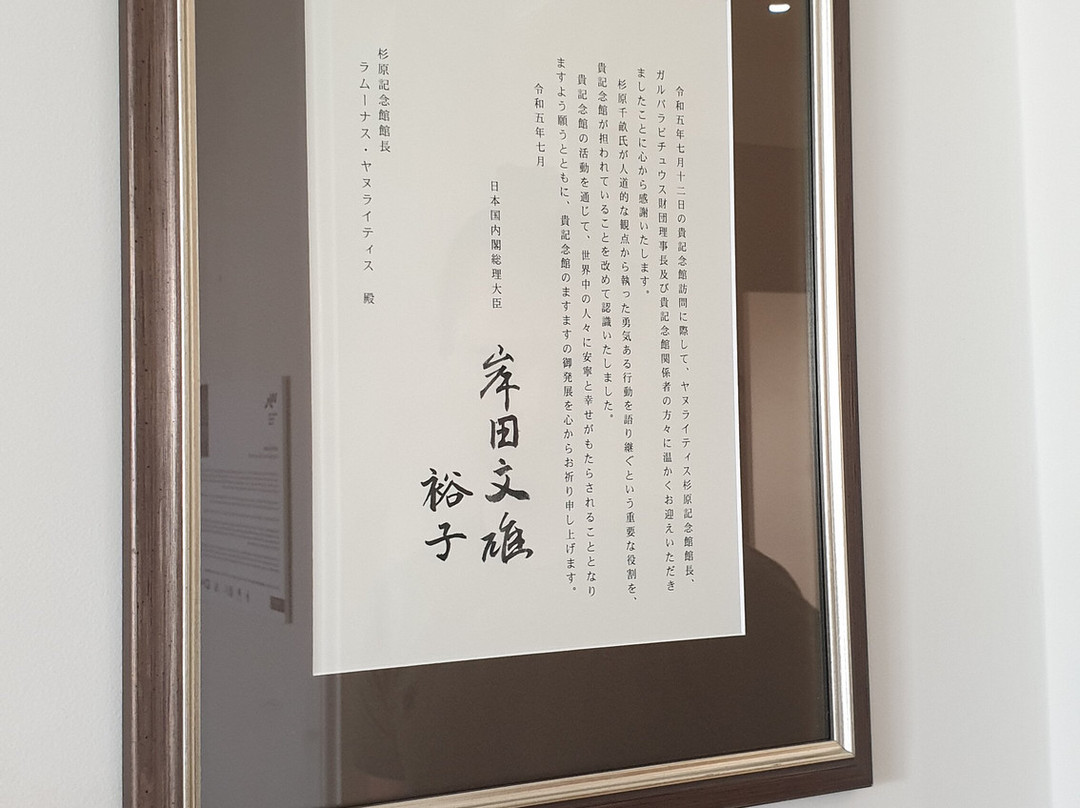 令和五年七月十二日の貴記念館訪問に際して、ヤヌライティス杉原記念館館長、
ガルバラビチュウス財団理事長及び貴記念館関係者の方々に温かくお迎えいただき
ましたことに心から感謝いたします。
杉原千畝氏が人道的な観点から執った勇気ある行動を語り継ぐという重要な役割を、
貴記念館が担われていることを改めて認識いたしました。
貴記念館の活動を通じて、世界中の人々に安寧と幸せがもたらされることとなり
ますよう願うとともに、貴記念館のますますの御発展を心からお祈り申し上げます。
令和五年七月
日本国内閣総理大臣
岸田文雄
裕子
杉原記念館館長
ラムーナス・ヤヌライティス 殿